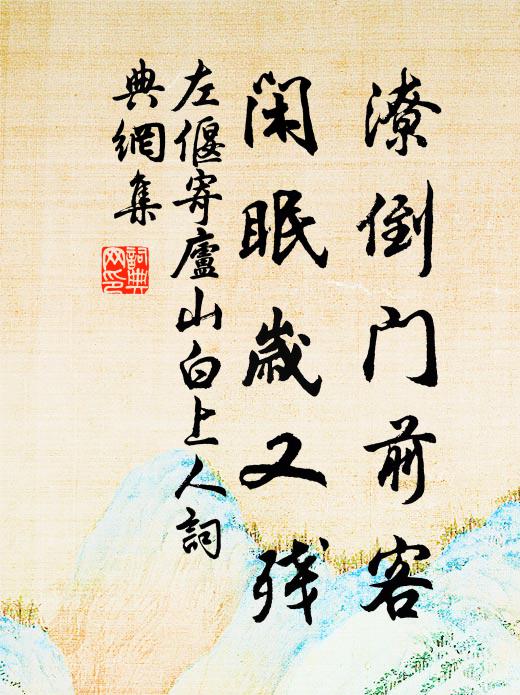 潦倒门前客
闲眠岁又残
左偃寄廬山白上人詞
典網集
詞典
网印